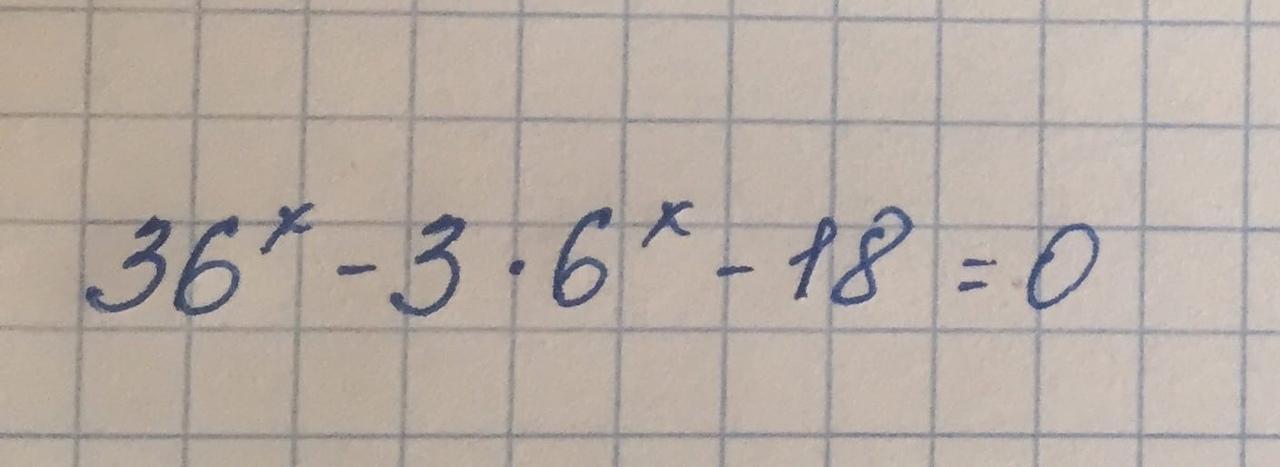 36ˣ - 3 · 6ˣ - 18 = 0